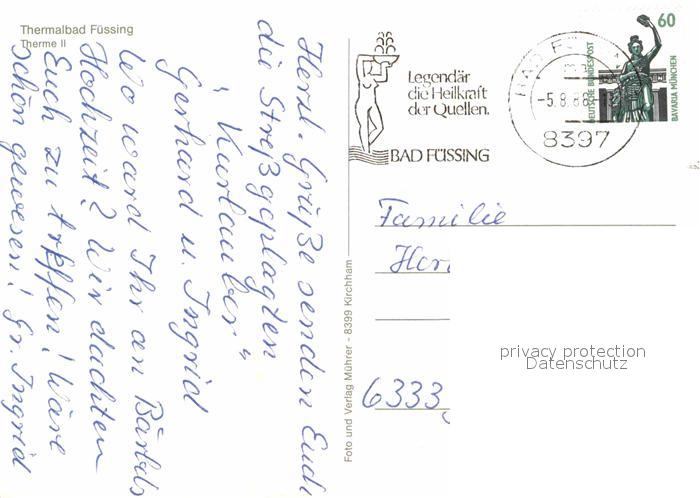 Thermalbad Füssing
Therme II
Herzl. Grüße senden Euch
die Streßgeplagten
"Kurlauber"
Gerhard u. Ingrid
Wo ward Ihr an Bärbels
Hochzeit? Wir dachten
Euch zu treffen! Wäre
schön gewesen! Gr. Ingrid
Foto und Verlag Mührer - 8399 Kirchham
Legendär
die Heilkraft
der Quellen.
BAD FÜSSING
BAD FÜ
-5.8.88
8397
60
DEUTSCHE BUNDESPOST
BAVARIA MÜNCHEN
Familie
Her
6333
privacy protection
Datenschutz